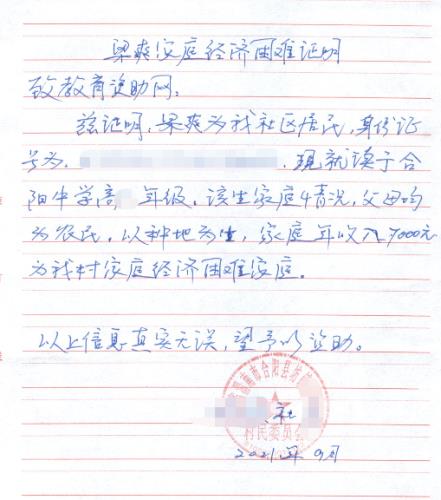 梁爽家庭经济困难证明
致教育资助网:
兹证明,梁爽为我社区居民,身份证
号为, . 现就读于合
阳中学高 年级。该生家庭4情况,父母均
为农民,以种地为生,家庭年收入7000元
为我村家庭经济困难家庭。
以上信息真实无误,望予以资助。
渭南市合阳县坊
社
村民委员会
2021年9月